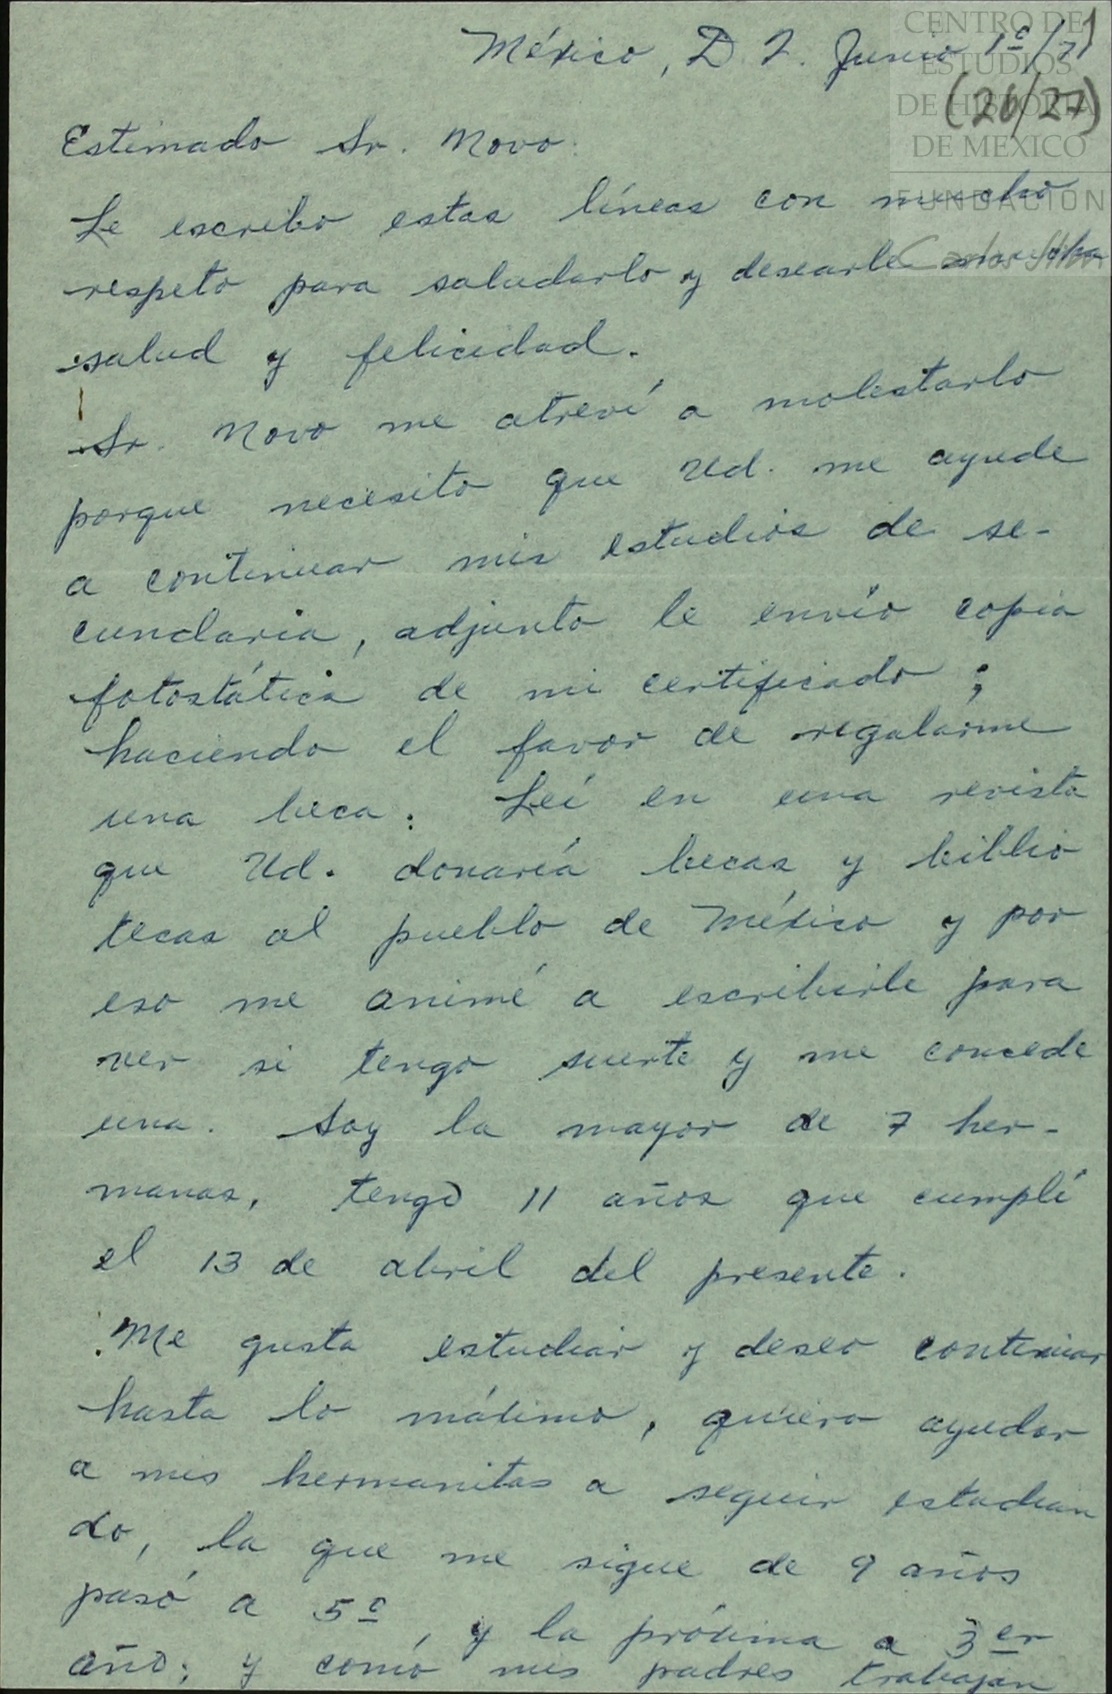 México, D. F. Junio 1º/71
(26/27)
CENTRO DE
ESTUDIOS
DE HISTORIA
DE MEXICO
FUNDACIÓN
Carlos Slim
Estimado Sr. Novo:
Le escribo estas líneas con mucho
respeto para saludarlo y desearle mucha
salud y felicidad.
Sr. Novo me atreví a molestarlo
porque necesito que Ud. me ayude
a continuar mis estudios de se-
cundaria, adjunto le envío copia
fotostática de mi certificado;
haciendo el favor de regalarme
una beca. Leí en una revista
que Ud. donaría becas y biblio
tecas al pueblo de México y por
eso me animé a escribirle para
ver si tengo suerte y me concede
una. Soy la mayor de 7 her-
manas, tengo 11 años que cumplí
el 13 de abril del presente.
Me gusta estudiar y deseo continuar
hasta lo máximo, quiero ayudar
a mis hermanitas a seguir estudian
do, la que me sigue de 9 años
pasó a 5º, y la próxima a 3er
año; y cómo mis padres trabajan